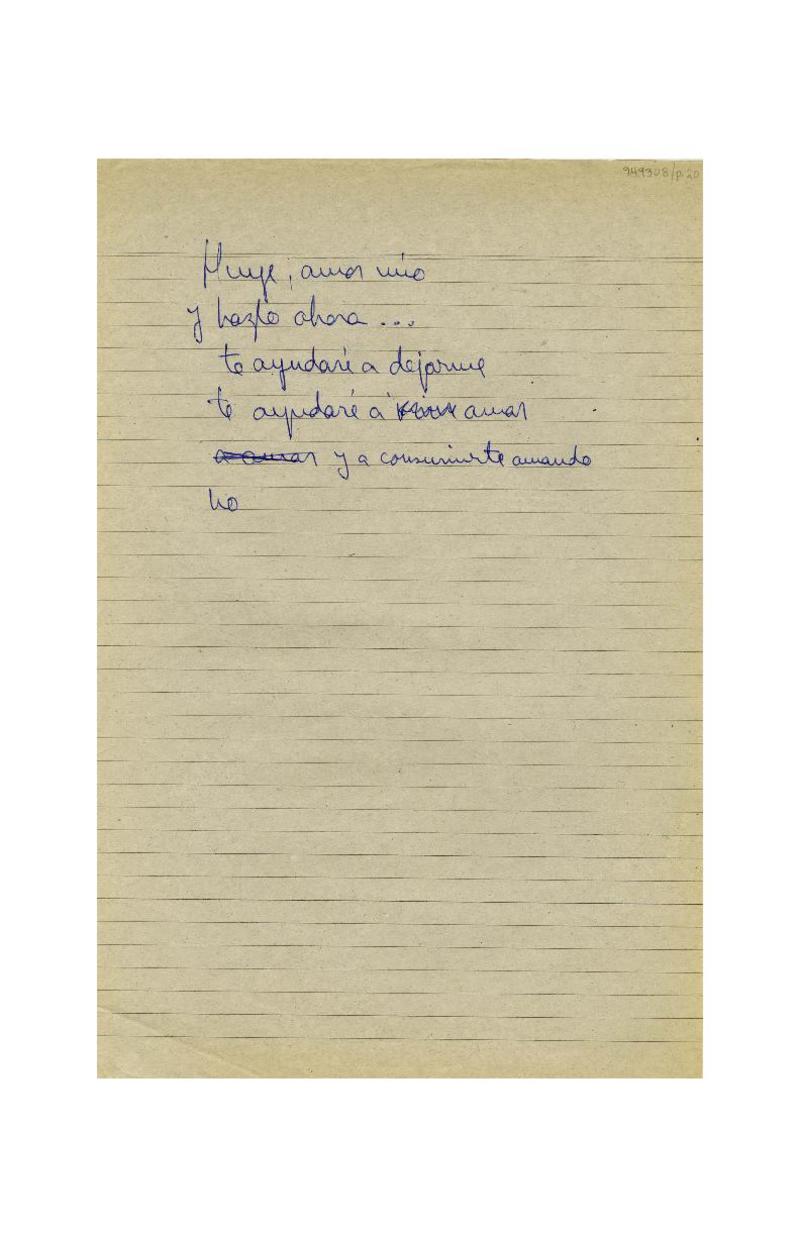 949308/p.20
Huye, amor mío
y hazlo ahora ...
te ayudaré a dejarme
te ayudaré a amar
a amar y a consumirte amando
no